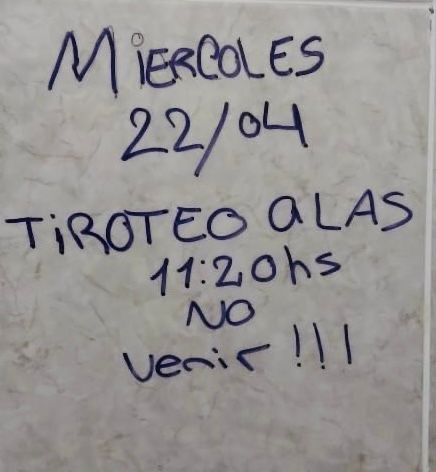 MiERCOLES
22/04
TiROTEO a LAS
11:20hs
NO
venir!!!